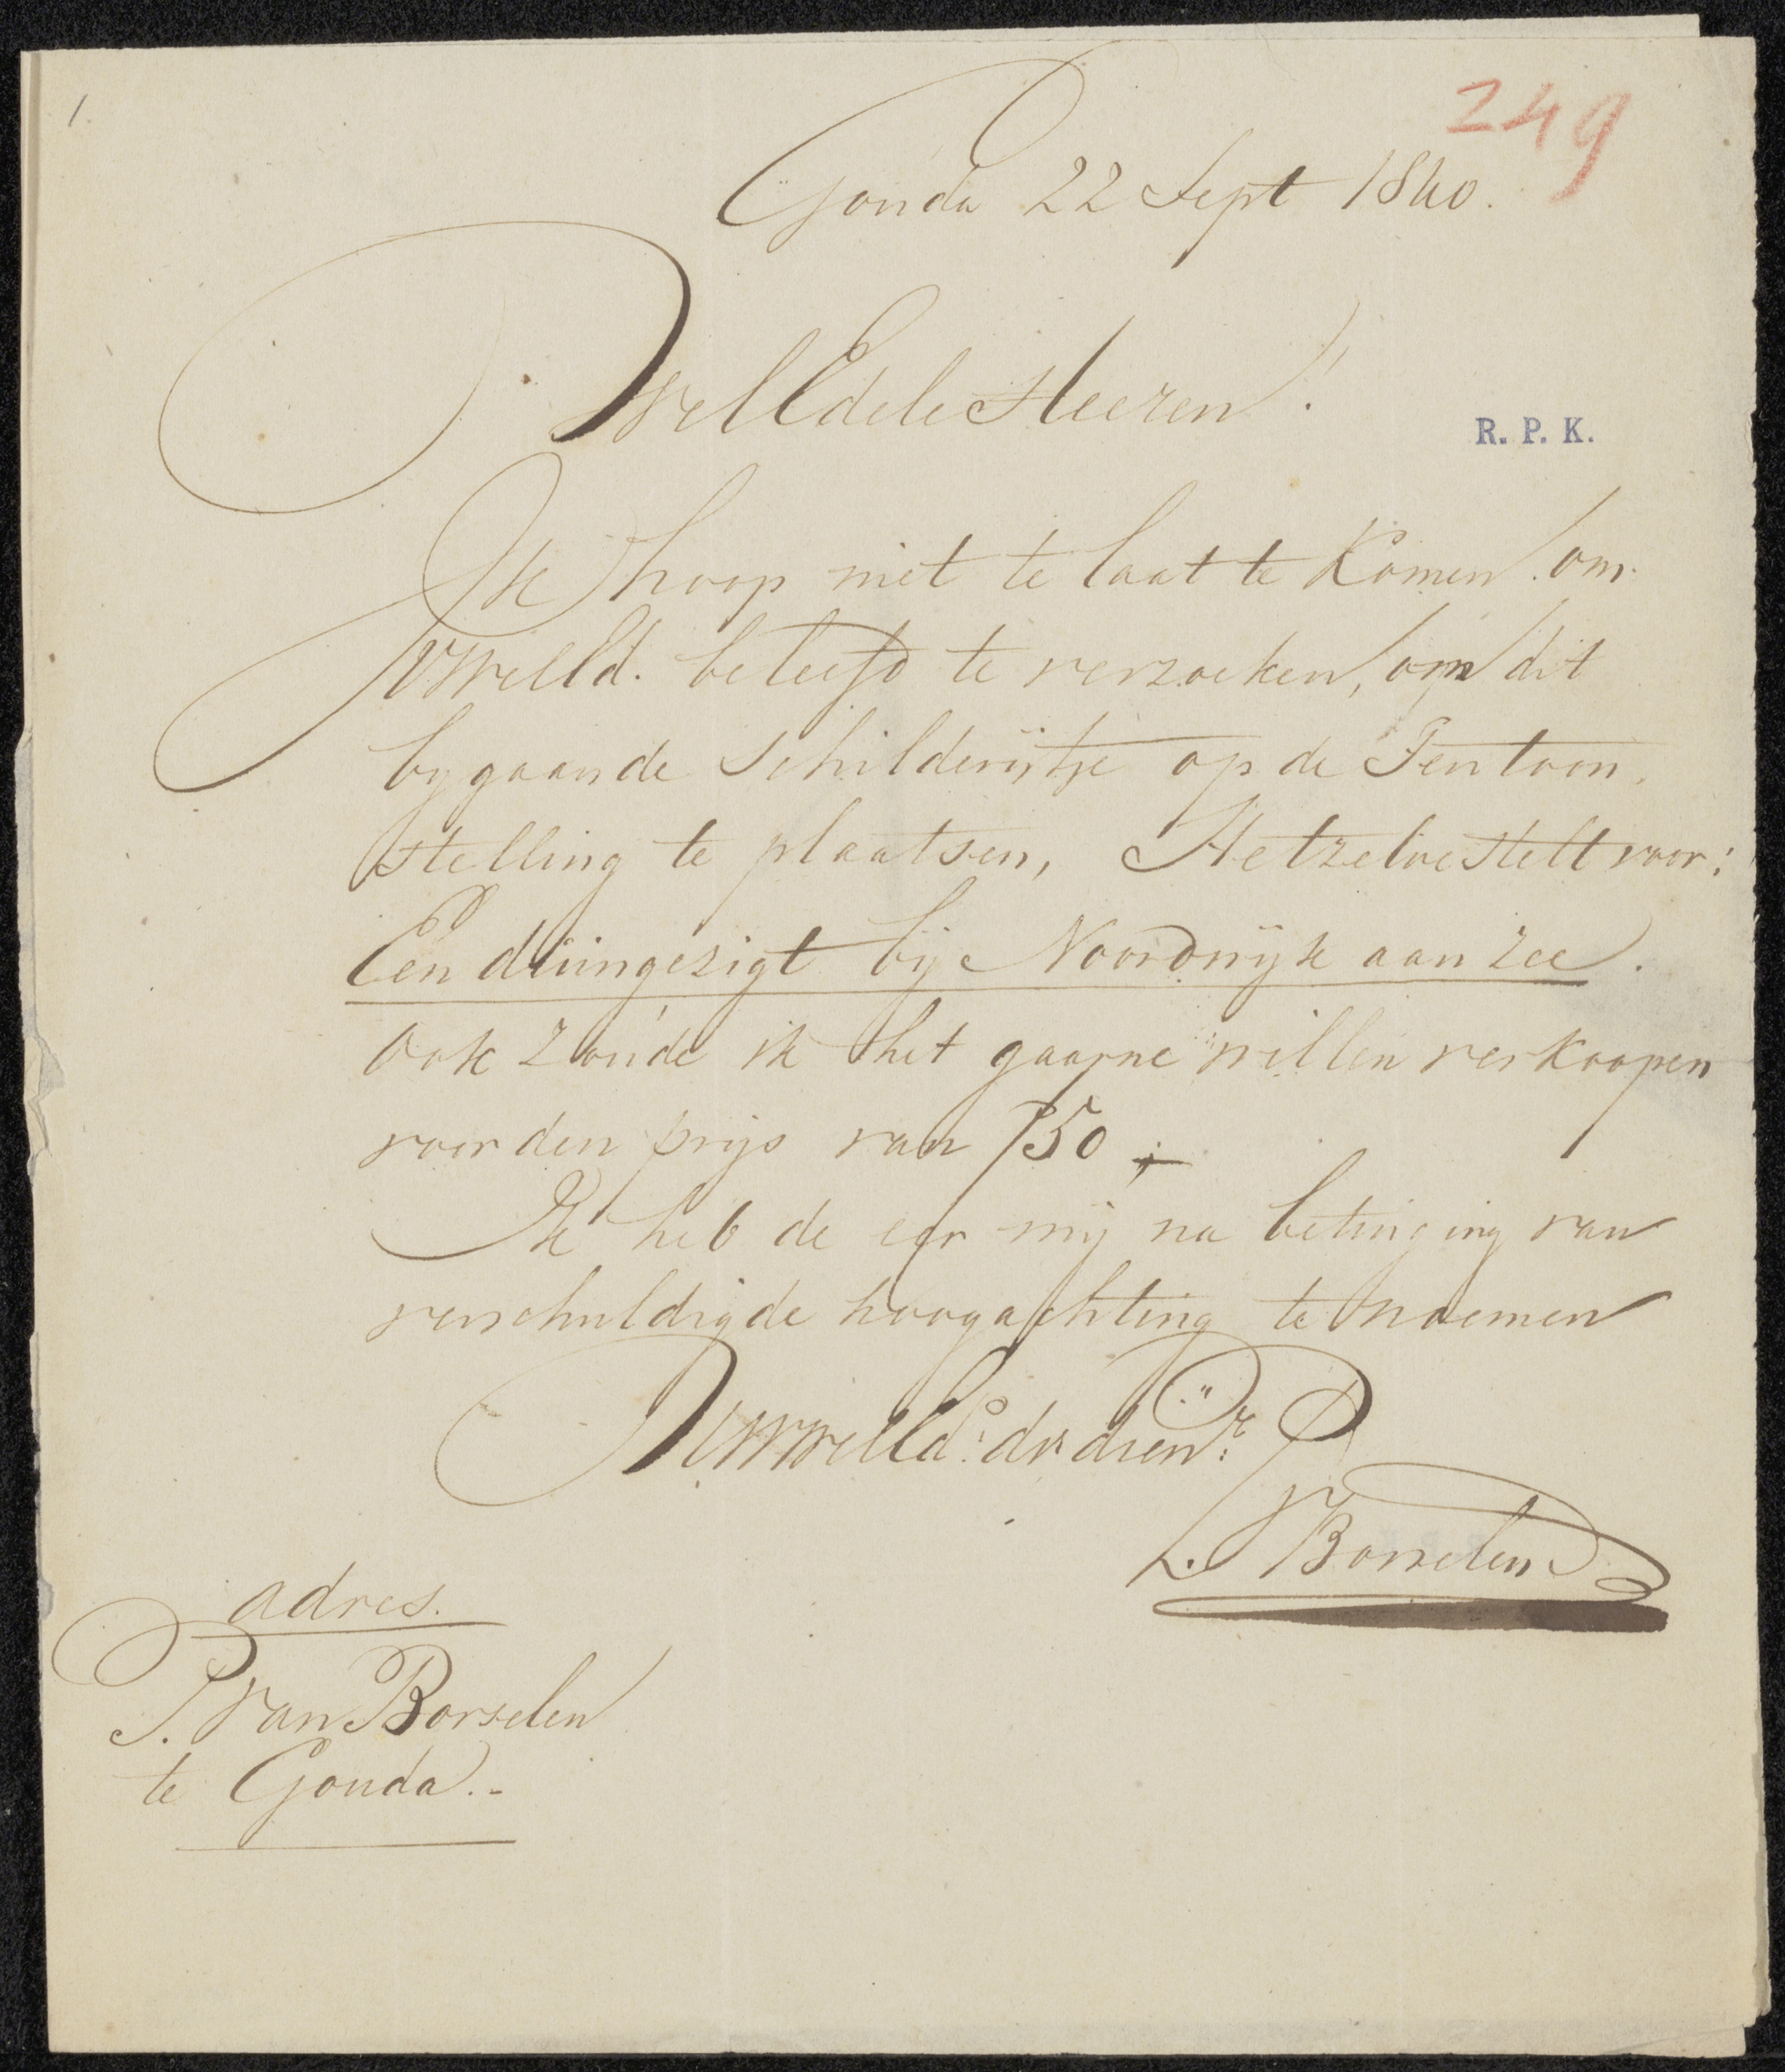 1.
249
Gouda 22 Sept 1840.
WelEdele Heeren!
R. P. K.
Ik hoop niet te laat te komen om
UWelEd. beleefd te verzoeken, om dit
bygaande schilderijtje op de Tentoon-
stelling te plaatsen, Hetzelve stelt voor:
Een duingezigt bij Noordwijk aan Zee.
Ook zoude ik het gaarne willen verkoopen
voor den prijs van ƒ50,-
Ik heb de eer mij na betuiging van
verschuldigde hoogachting te noemen
UWWelEd: dw dienr:
Borselen
adres.
P. Van Borselen
te Gouda.-